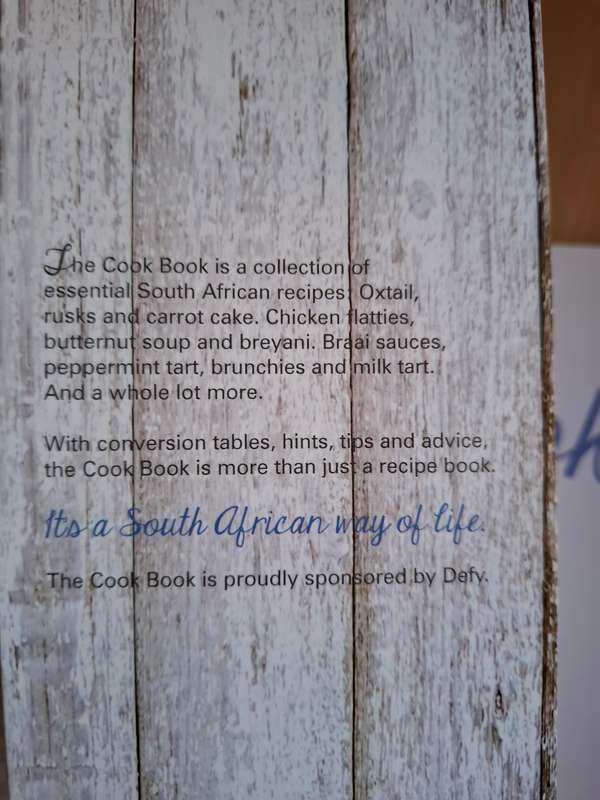 The Cook Book is a collection of
essential South African recipes: Oxtail,
rusks and carrot cake. Chicken flatties,
butternut soup and breyani. Braai sauces,
peppermint tart, brunchies and milk tart.
And a whole lot more.
With conversion tables, hints, tips and advice,
the Cook Book is more than just a recipe book.
It's a South African way of life.
The Cook Book is proudly sponsored by Defy.